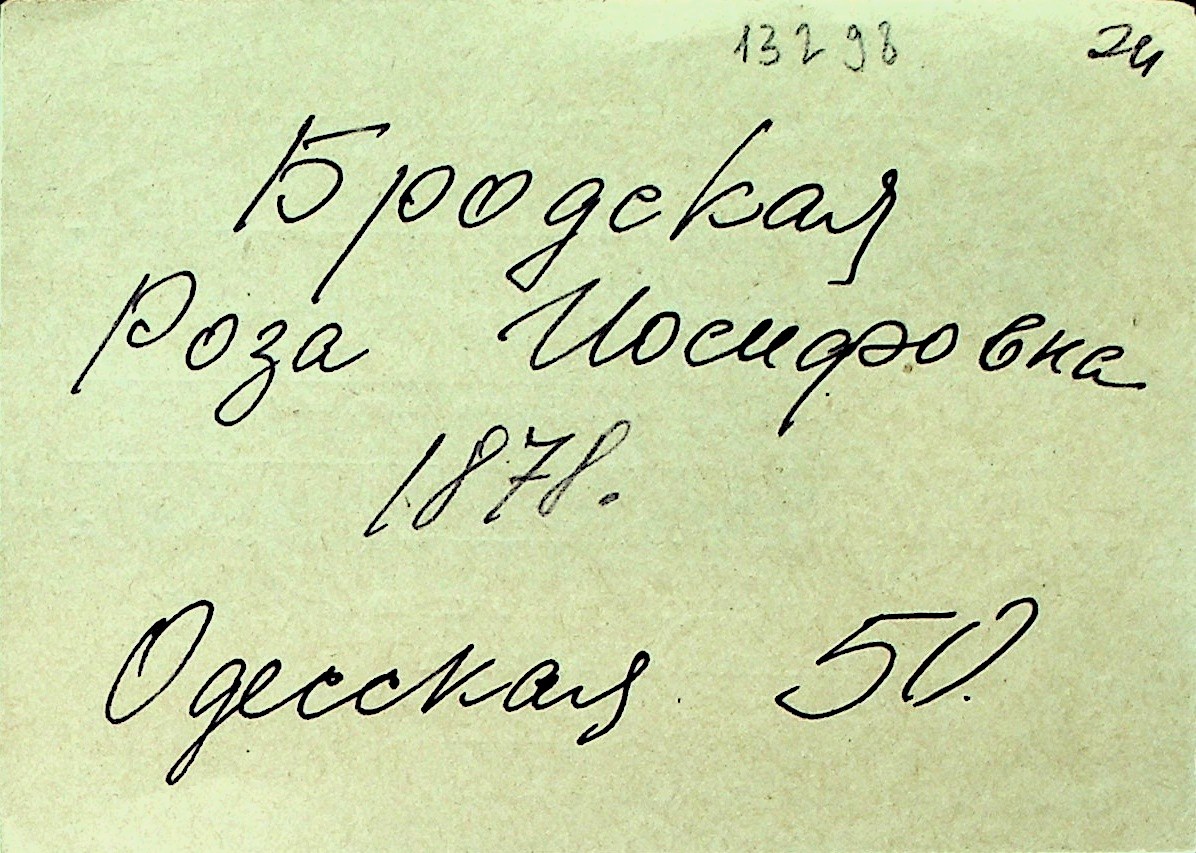 13298 24
Бродская
Роза Иосифовна
1878.
Одесская 50.